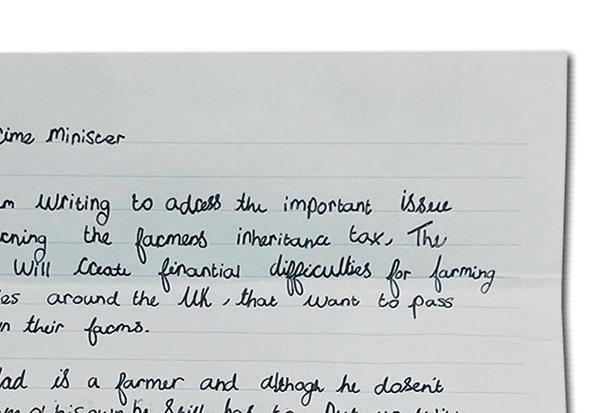 ime Minister
m writing to adress the important issue
rning the farmers inheritance tax, The
will create finantial difficulties for farming
ies around the UK, that want to pass
n their farms.
dad is a farmer and althogh he dosen't